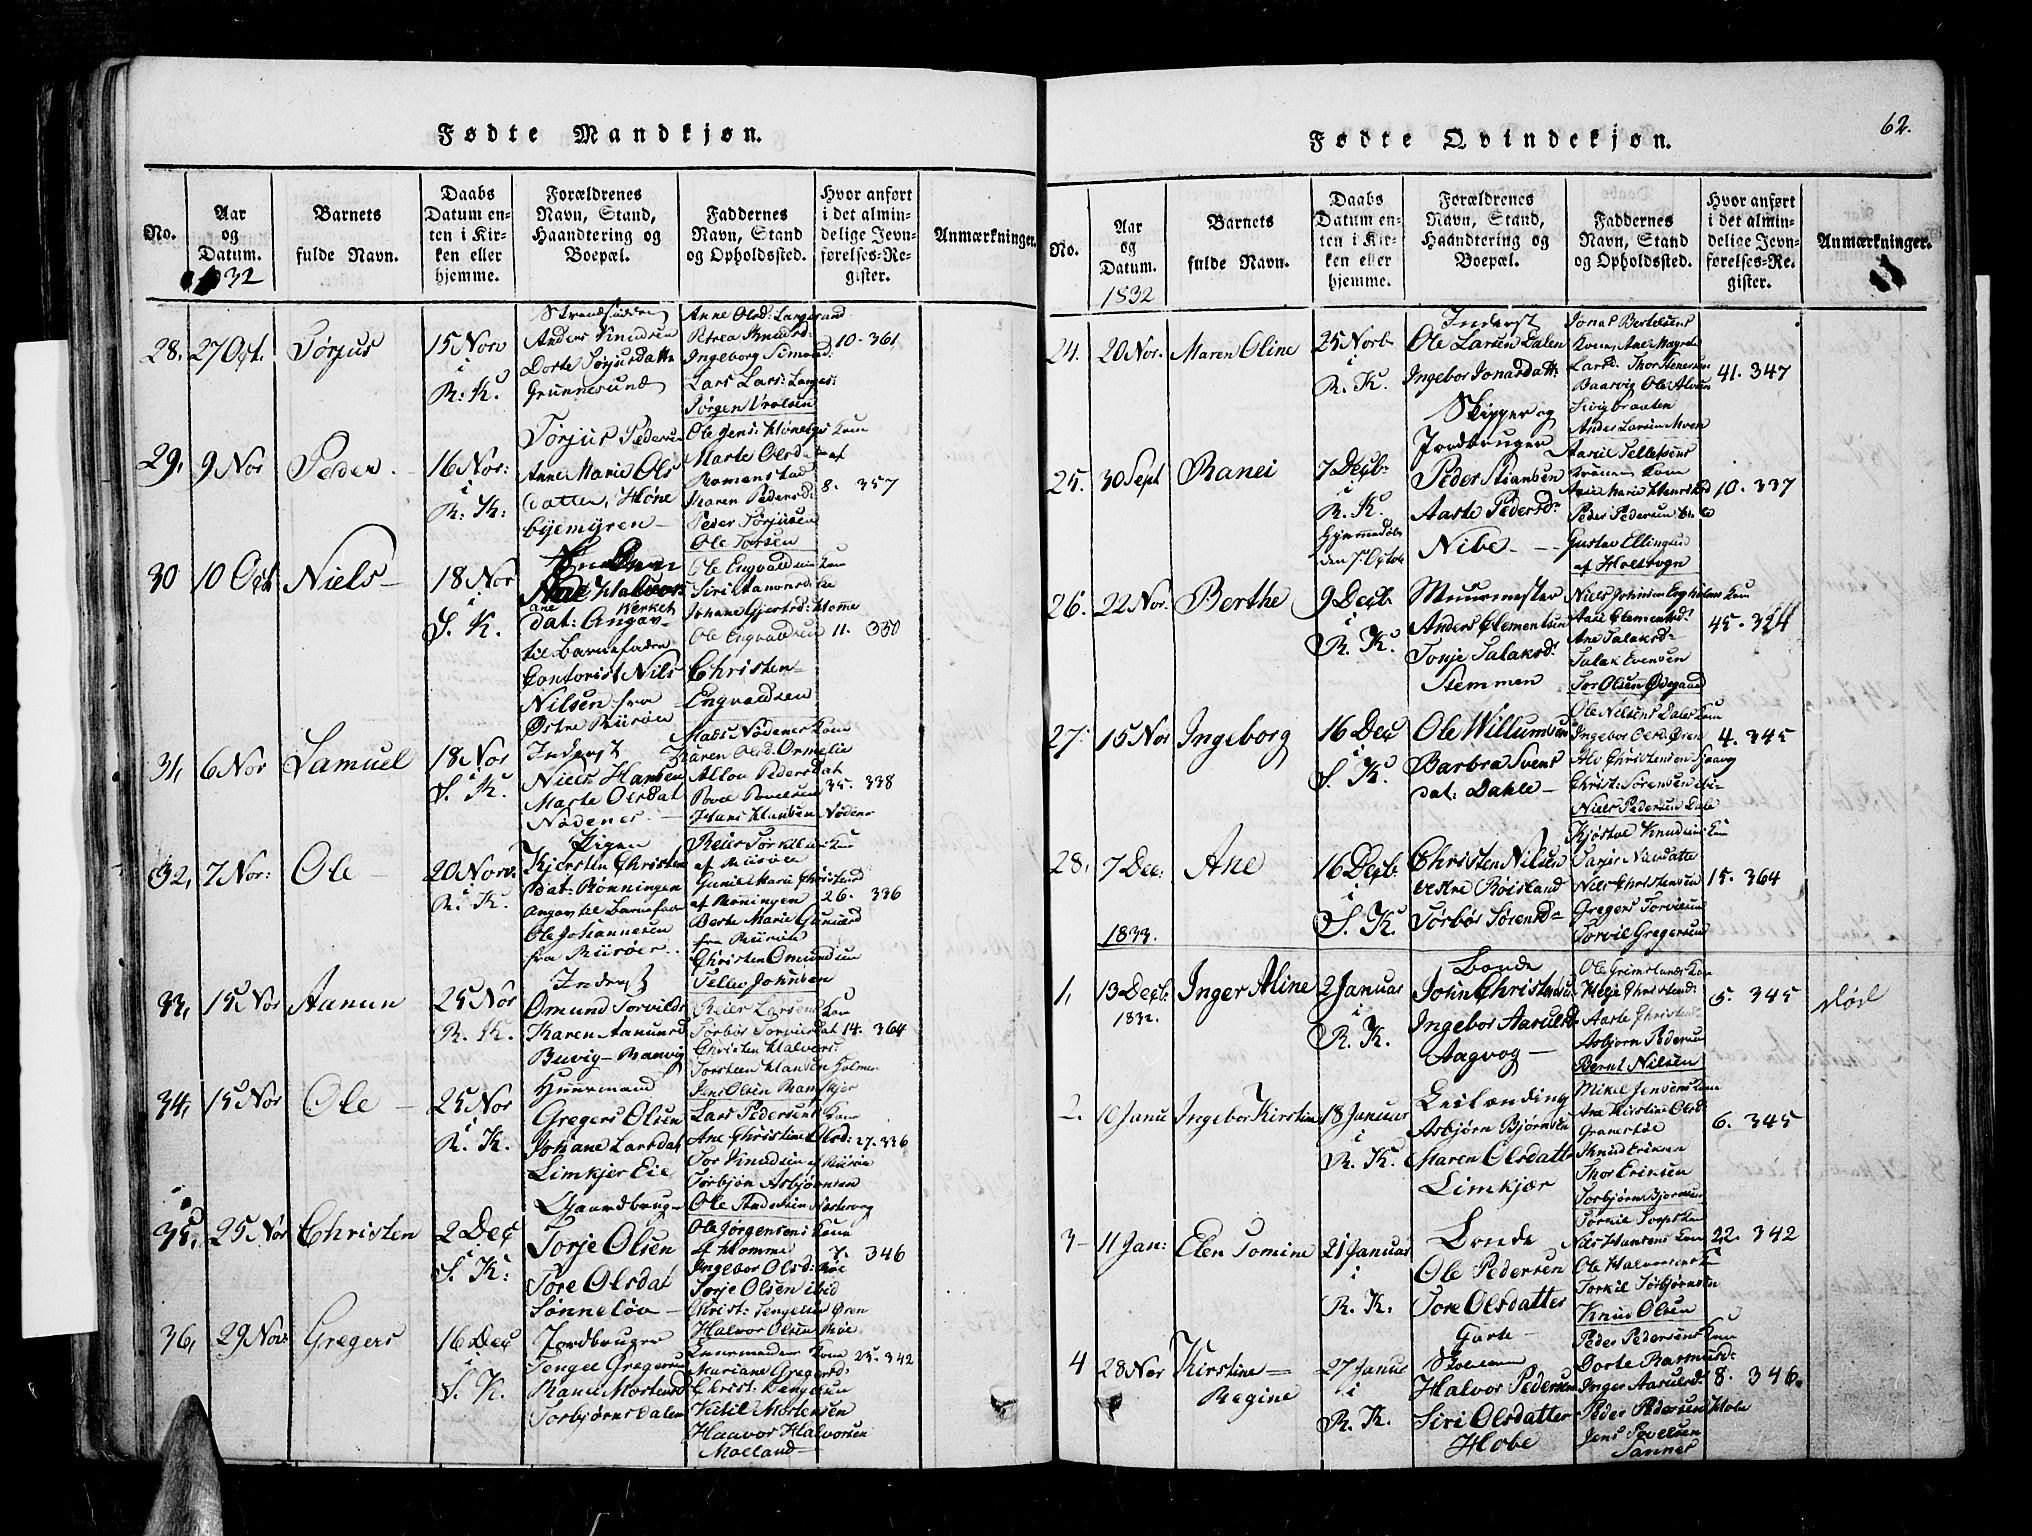 Fødte Mandkjøn.
No.
Aar
og
Datum.
1832
Barnets
fulde Navn.
Daabs
Datum en-
ten i Kir-
ken eller
hjemme.
Forældrenes
Navn, Stand,
Haandtering og
Boepæl.
Faddernes
Navn, Stand
og Opholdssted.
Hvor anført
i det almin-
delige Jevn-
førelses-Re-
gister.
Anmærkninger.
28, 27 Oct. Tørjus
15 Nov
i
R. K.
Anders Knudsen
Dorte Tørjusdatte
Grunnesund
Anne Olsd: Langesand
Petrea Knudsd:
Ingeborg Simonsd
Lars Lars: Langes:
Jørgen Wrolsen
10. 361
29, 9 Nov Peder.
16 Nov:
i
R: K:
Tørjus Pedersen
Anne Marie Ols
datter, Høne
byemyren
Marte Olsdat
Romenstad
Karen Pedersd:
Peder Tørjusen
Ole Torsen
8. 357
30 10 Oct Niels
18 Nov
i
S. K.
dat: Angav
til Barnefader
Contorist Nils
Nilsen fra
Østre Riisøer
Ole Engvaldsen Kone
Johane Gjertsd: Homme
Ole Engvaldsen
Christen
Engvaldsen
11. 330
31, 6 Nov Samuel
18 Nov
i
S. K.
Inderst
Niels Hansen
Marte Olsdat
Nødenes
Mads Nødenes Kone
Karen Olsd: Ormelie
Pedersdat
Povel Povelsen
Hans Hansen Nødene
35. 338
32, 7 Nov: Ole
20 Nov.
i
R. K.
Pigen
Kjersten Christen
dat: Rønningen
Angav til Barnefader
Ole Johannesen
fra Riisøer.
Reier Torkilsens Kone
af Riisøer
Gunil Marie Christensd
af Rønningen
Berte Marie Gunuldsd
fra Riisøer
Christen Omundsen
Tellev Johnsen
26. 336
33, 15 Nov Aanun
25 Nov
i
R. K.
Inderst
Omund Torvilds
Karen Aanunsd
Buvig - Ranvig
Reier Larsens Kone
Torbor Torvilsdat
Christen Halvors:
Torsten Hansen Holmen
14. 364
34, 15 Nov Ole
25 Nov
i
R. K.
Huusmand
Gregers Olsen
Johane Larsdat
Limkjer Eie
Jens Olsen Ramskjer
Lars Pedersens Kone
Ane Christine Olsd:
Tor Knudsen af Riisøer
Torbjøn Asbjørnsen
Ole
27. 336
35, 25 Nov Christen
2 Dec
i
S. K:
Gaardbrug
Torje Olsen
Tore Olsdat
Sønneløv
Ole Jørgensens Kone
af Homme
Ingebor Olsd: Røe
Torje Olsen ibid
Christ: Tengelsen Øren
Halvor Olsen Røe
7. 346
36, 29 Nov: Gregers
16 Dec
i
S. K.
Jordbruger
Tengel Gregersen
Rane Mortensd
Torbjørnsdalen
Mariane Gregersd:
Christ: Tengelsen
Ketil Mortensen
Haavor Halvorsen
Moeland
25. 342
62.
Fødte Qvindekjøn.
No.
Aar
og
Datum.
1832
Barnets
fulde Navn.
Daabs
Datum en-
ten i Kir-
ken eller
hjemme.
Forældrenes
Navn, Stand,
Haandtering og
Boepæl.
Faddernes
Navn, Stand
og Opholdssted.
Hvor anført
i det almin-
delige Jevn-
førelses-Re-
gister.
Anmærkninger.
24. 20 Nov. Maren Oline
25 Novb.
i
R. K.
Inderst
Ole Larsen Dalen
Ingebor Jonasdatt:
Jonas Bertelsens
Kone, Ane Magrete
Larsd. Thor Stenersen
Baasvig Ole Alvsen
Anders Larsen Moen
41. 347
25. 30 Sept Ranei
7 Decb.
i
R. K.
Hjemmedøbt
den 7 Octob
Skipper og
Jordbruger
Peder Stiansen
Aaste Pedersd:
Nibe
Aasil Tellefsens
Kone
Ane Marie
Peder Pedersen
Gustav Ellingsen
af Holt Sogn
10. 337
26. 22 Nov. Berthe
9 Decb.
i
R. K.
Muurmester
Anders Clementsen
Tonje Salaksd.
Stemmen
Niels Johnsen Kone
Aase Clementsd:
Ane Salaksd.
Salak Evensen
Tor Olsen Ødegaard
45. 324
27. 15 Nov Ingeborg
16 Dec
i
S. K.
Ole Willumsen
Barbra Svens
dat: Dahle
Ole Nilsens Dales Kone
Ingebor Olsd. Øren
Christ: Sørensen ibi-
Niels Pedersen Dale
4. 345
28, 7 Dec: Ane
16 Decb.
i
S. K.
Christen Nilsen
vestre Røisland
Torbor Sørensd
Kjøstvel Knudsens Kone
Nilsdatter
Nils Christensen
Gregers Torvilsen
Torvil Gregersen
15. 364
1833.
1, 13 Decb.
1832.
Inger Aline
2 Januar
i
R. K.
Bonde
John Christensen
Ingebor Aasulsd
Aagvog
Ole Grimslands Kone
Helje Christensd:
Aaste Christensd
Asbjørn Pedersen
Bernt Nilsen
5. 345
død
2. 10 Janu Ingebor Kirstine
18 Januar
i
R. K.
Leilænding
Asbjørn Bjørnsen
Maren Olsdatter
Limkjær
Mikel Jensens Kone
Ane Kirstine Olsd.
Granestøe
Knud Eriksen
Thor Eriksen
Torbjørn Bjørnsen
6. 345
3 11 Jan: Elen Tomine
21 Januar
i
R. K.
Bonde
Ole Pedersen
Tore Olsdatter
Garte
Nils Hansens Kone
Ole Halvorsens K
Torkil Torbjørnsen
Knud Olsen
22. 342
4 28 Nov Kirstine
Regine
27 Januar
i
R. K.
Halvor Pedersen
Siri Olsdatter
Hobe
Peder Pedersens Kone
Dorte Rasmusd:
Inger Aasulsd.
Peder Pedersen Hobe
Jens Povelsen
Sannes
8. 346.